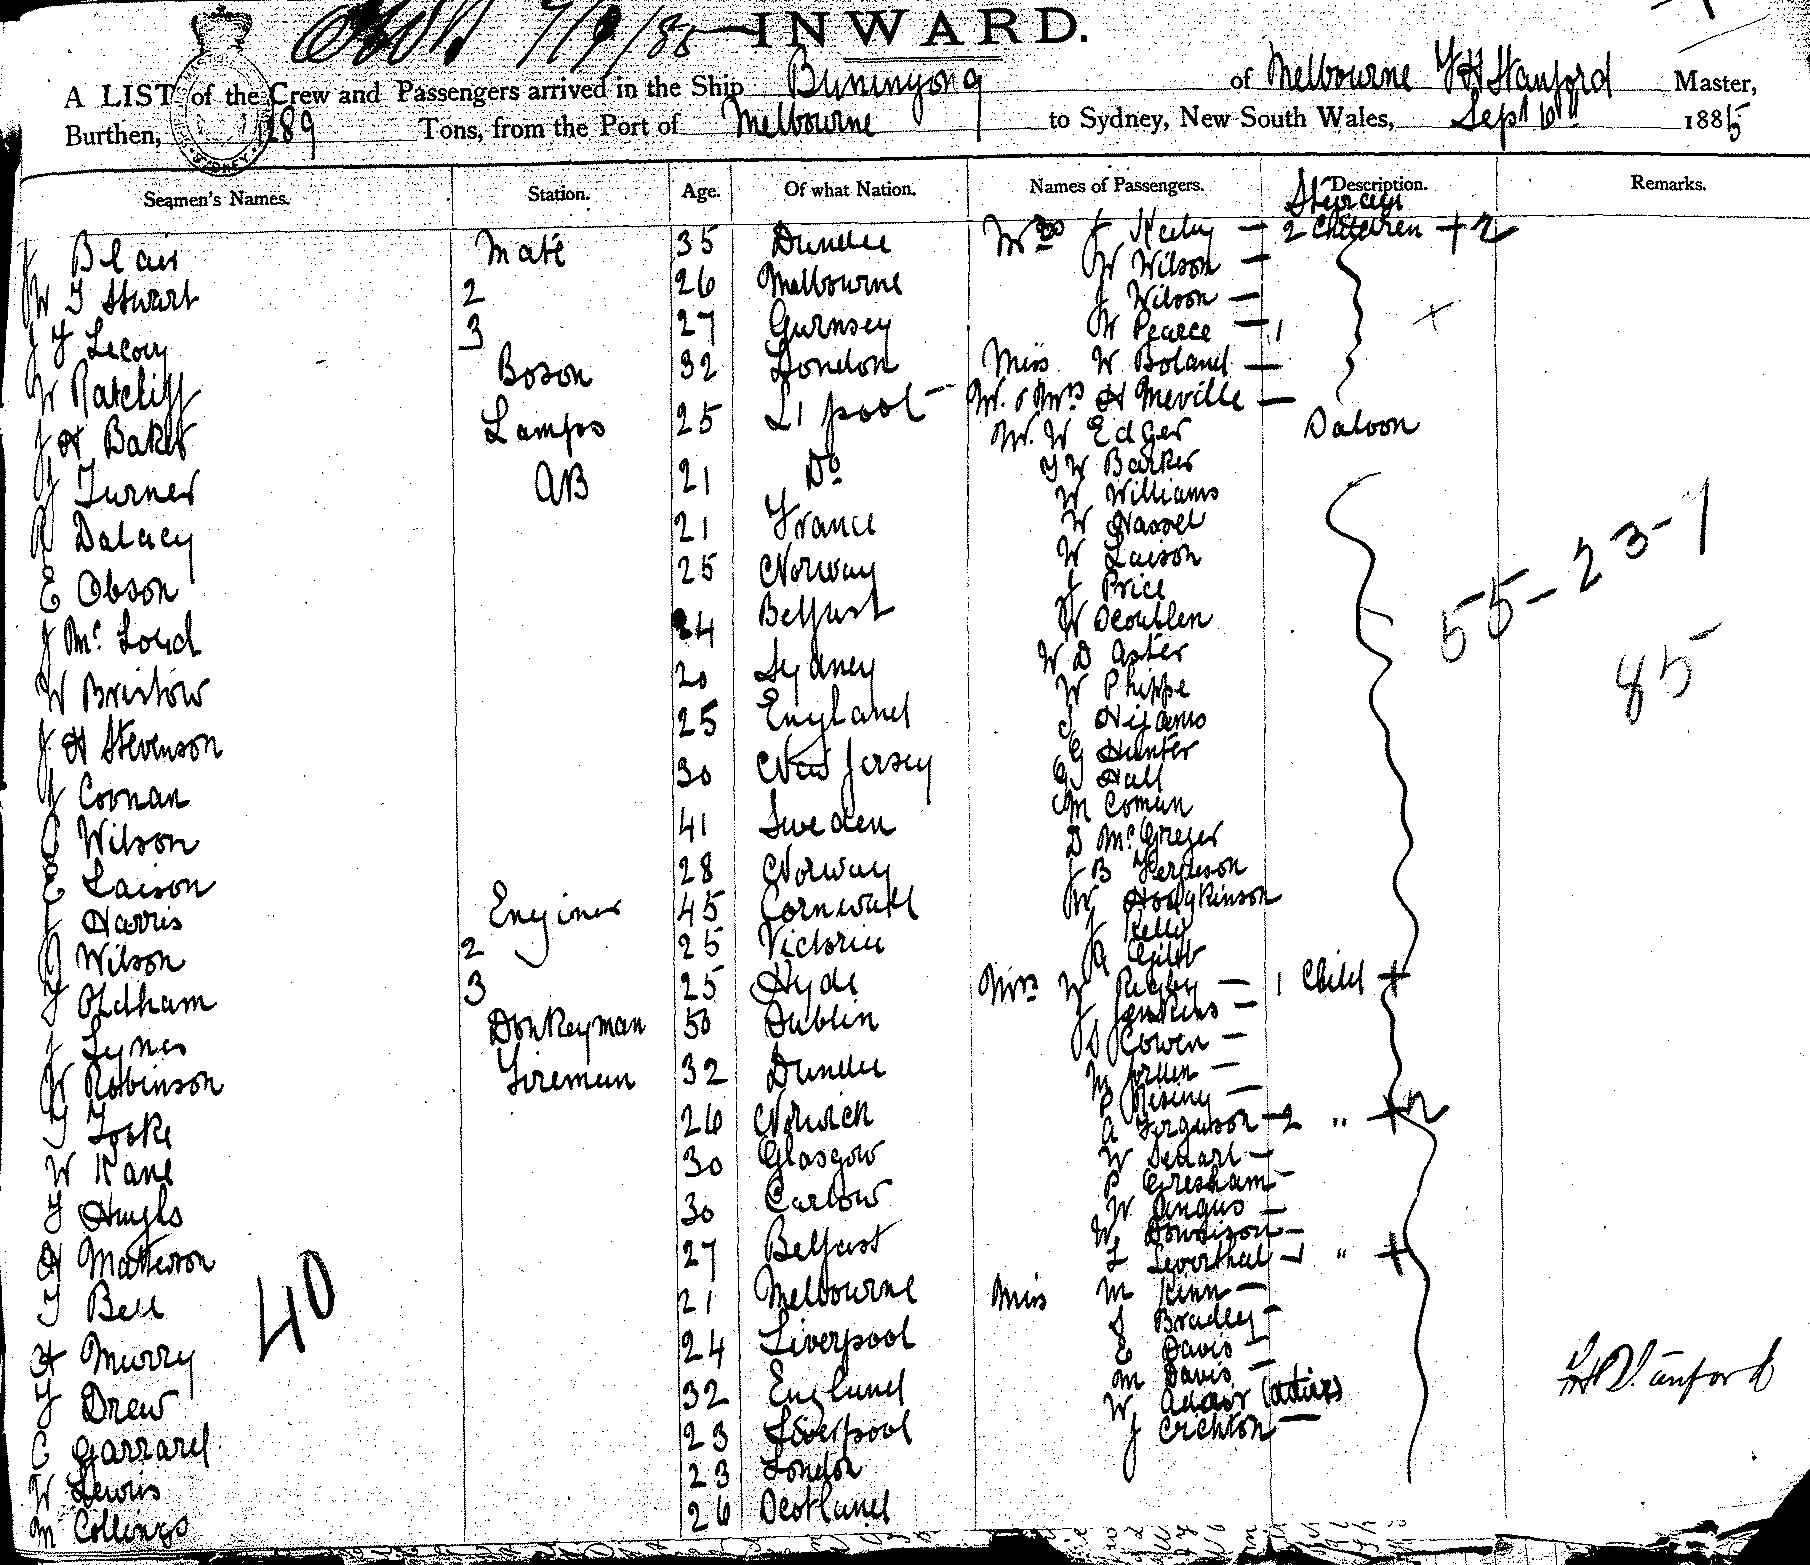 7/9/85 INWARD.
A LIST of the Crew and Passengers arrived in the Ship Buninyong of Melbourne Master,
Burthen, 1289 Tons, from the Port of Melbourne to Sydney, New South Wales, Sept 6th 1885
Seamen's Names. Station. Age. Of what Nation. Names of Passengers. Description. Remarks.
J Blair Mate 35 Dundee
W J Stuart 2 26 Melbourne
3 27 Gurnsey
W Ratcliff Boson 32 London
J H Baker Lamps 25 L'pool
J Turner AB 21 Do
R Dalacy 21 France
E Obson 25 Norway
J Mc Loud 24 Belfast
W Bristow 20 Sydney
J H Stevenson 25 England
J Coonan 30 New Jersey
C Wilson 41 Sweden
E Laison 28 Norway
J Harris Enginer 45 Cornwall
J Wilson 2 25 Victoria
F Oldham 3 25 Hyde
J Lynes Donkeyman 50 Dublin
W Robinson Fireman 32 Dundee
T Tooke 26 Norwich
W Kane 30 Glasgow
30 Carlow
H Matterson 27 Belfast
T Bell 21 Melbourne
H Murry 24 Liverpool
F Drew 32 England
C Garrard 23 Liverpool
W Lewis 23 London
M Collings 26 Scotland
40
Mrs J - 2 Children + 2
W Wilson -
J Wilson -
W Pearce - 1
Miss W Boland -
Mr. & Mrs H Meville -
Mr. W Edger Saloon
F W Barker
W Williams
W
W Laison
J Price
W
W D Aster
W Phippe
J
G Hunter
G Hall
M Coman
D Mc Greger
J B Ferguson
W Hodgkinson
J Kelly
A
Mrs W - 1 Child +
J Jenkins -
S Cowen -
M -
P -
A Ferguson - 2 " + 2
W Stuart -
P Gresham -
W Angus -
W -
L Leverthal - 1 " +
Miss M Kinn -
J Bradley -
E Davis -
M Davis -
W Adair
J Crchton -
55-23-7
85